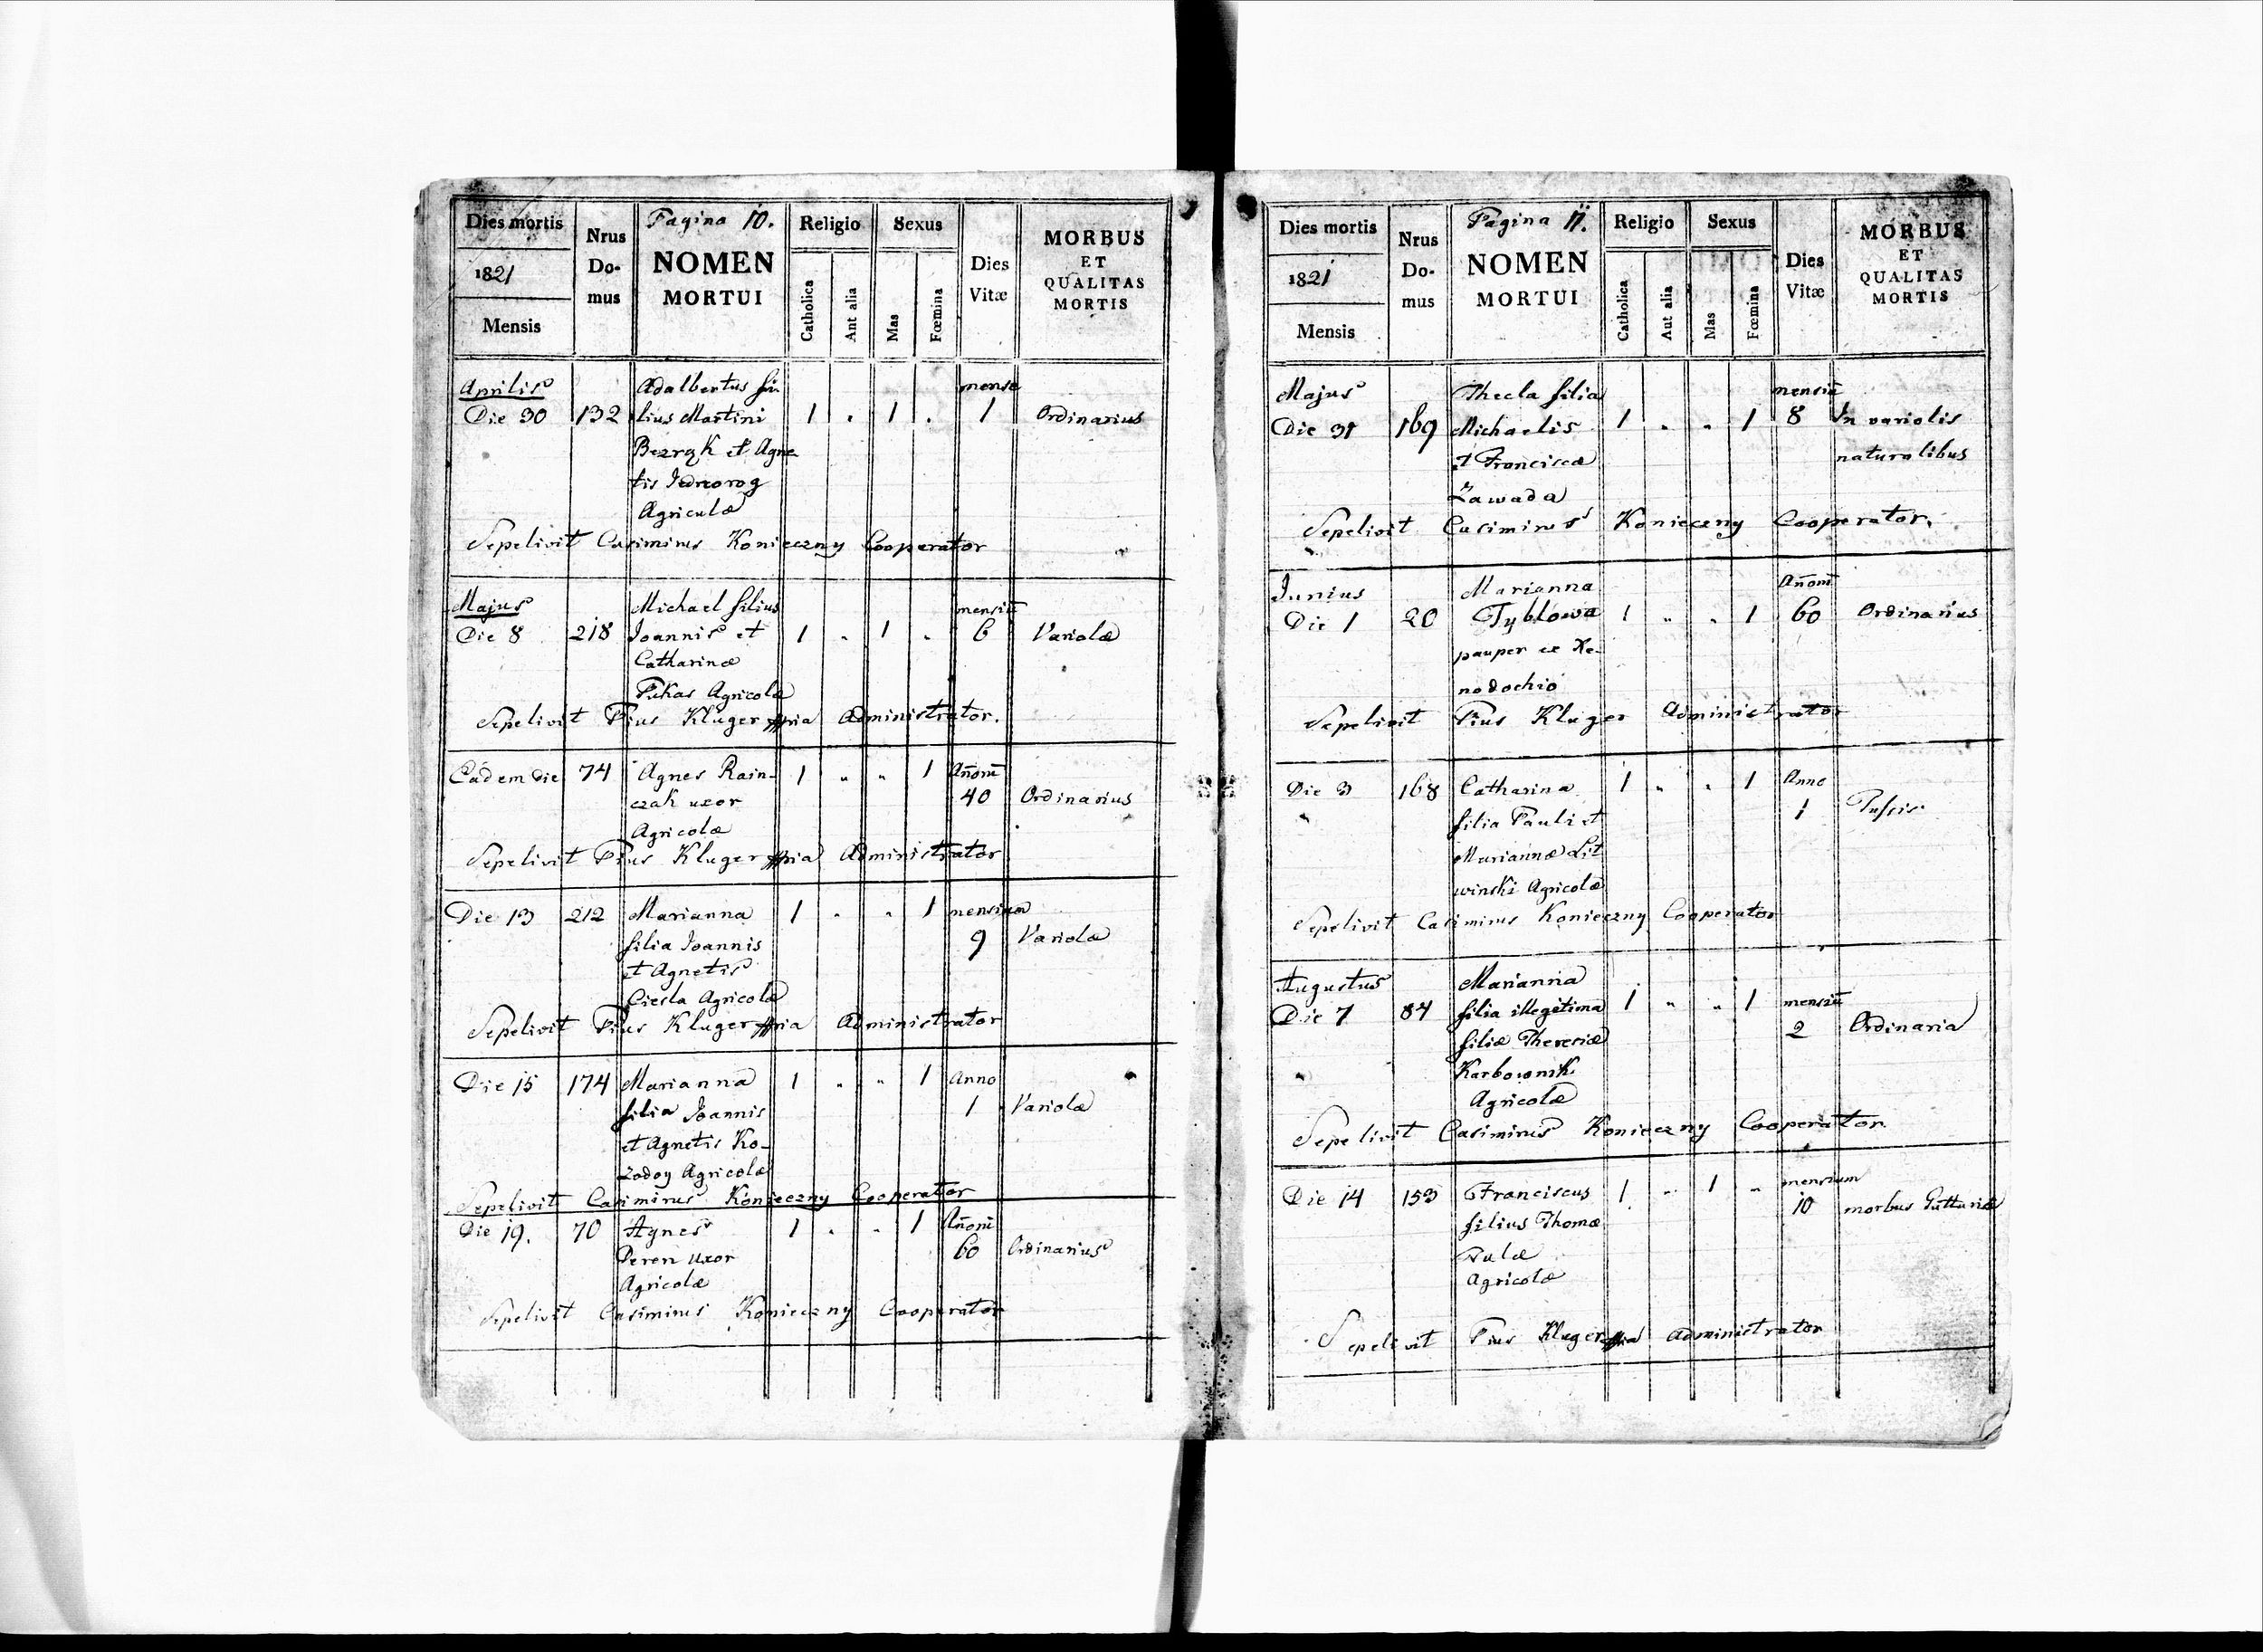 Dies mortis
1821
Mensis
Nrus
Do-
mus
Pagina 10.
NOMEN
MORTUI
Religio
Catholica
Aut alia
Sexus
Mas
Fœmina
Dies
Vitæ
MORBUS
ET
QUALITAS
MORTIS
Aprilis Adalbertus fi- mense
Die 30 132 lius Martini 1 . 1 . 1 Ordinarius
et Agne
tis
Agriculæ
Sepelivit Casimirus Konieczny Cooperator
Majus Michael filius mensiū
Die 8 218 Joannis et 1 „ 1 „ 6 Variolæ
Catharinæ
Pukas Agricolæ
Sepelivit Pius Kluger mpria Administrator.
Eadem die 74 Agnes Rain- 1 „ „ 1 Añorū
czak uxor 40 Ordinarius
Agricolæ
Sepelivit Pius Kluger mpria Administrator
Die 13 212 Marianna 1 „ „ 1 mensium
filia Joannis 9 Variolæ
et Agnetis
Ciesla Agricolæ
Sepelivit Pius Kluger mpria Administrator
Die 15 174 Marianna 1 „ „ 1 Anno
filia Joannis 1 Variolæ
et Agnetis Ko-
zodoy Agricolæ
Sepelivit Casimirus Konieczny Cooperator
Die 19. 70 Agnes 1 „ „ 1 Añorū
Deren uxor 60 Ordinarius
Agricolæ
Sepelivit Casimirus Konieczny Cooperator
Dies mortis
1821
Mensis
Nrus
Do-
mus
Pagina 11.
NOMEN
MORTUI
Religio
Catholica
Aut alia
Sexus
Mas
Fœmina
Dies
Vitæ
MORBUS
ET
QUALITAS
MORTIS
Majus Thecla filia mensiū
Die 31 169 Michaelis 1 „ „ 1 8 In variolis
et Franciscæ naturalibus
Zawada
Sepelivit Casimirus Konieczny Cooperator.
Junius Marianna Añorū
Die 1 20 Tyblowa 1 „ „ 1 60 Ordinarius
pauper ex Xe-
nodochio
Sepelivit Pius Kluger Administrator
Die 3 168 Catharina 1 „ „ 1 Anno
filia Pauli et 1 Tussis
Mariannæ Lit
winski Agricolæ
Sepelivit Casimirus Konieczny Cooperator
Augustus Marianna
Die 7 84 filia illegitima 1 „ „ 1 mensiū
filiæ Theresiæ 2 Ordinaria
Karbownik
Agricolæ
Sepelivit Casimirus Konieczny Cooperator.
Die 14 153 Franciscus 1 „ 1 „ mensium
filius Thomæ 10 morbus
Agricolæ
Sepelivit Pius Kluger mpria Administrator